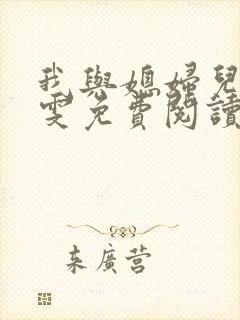 我與媳婦兒
雯免費閱讀
来廣营